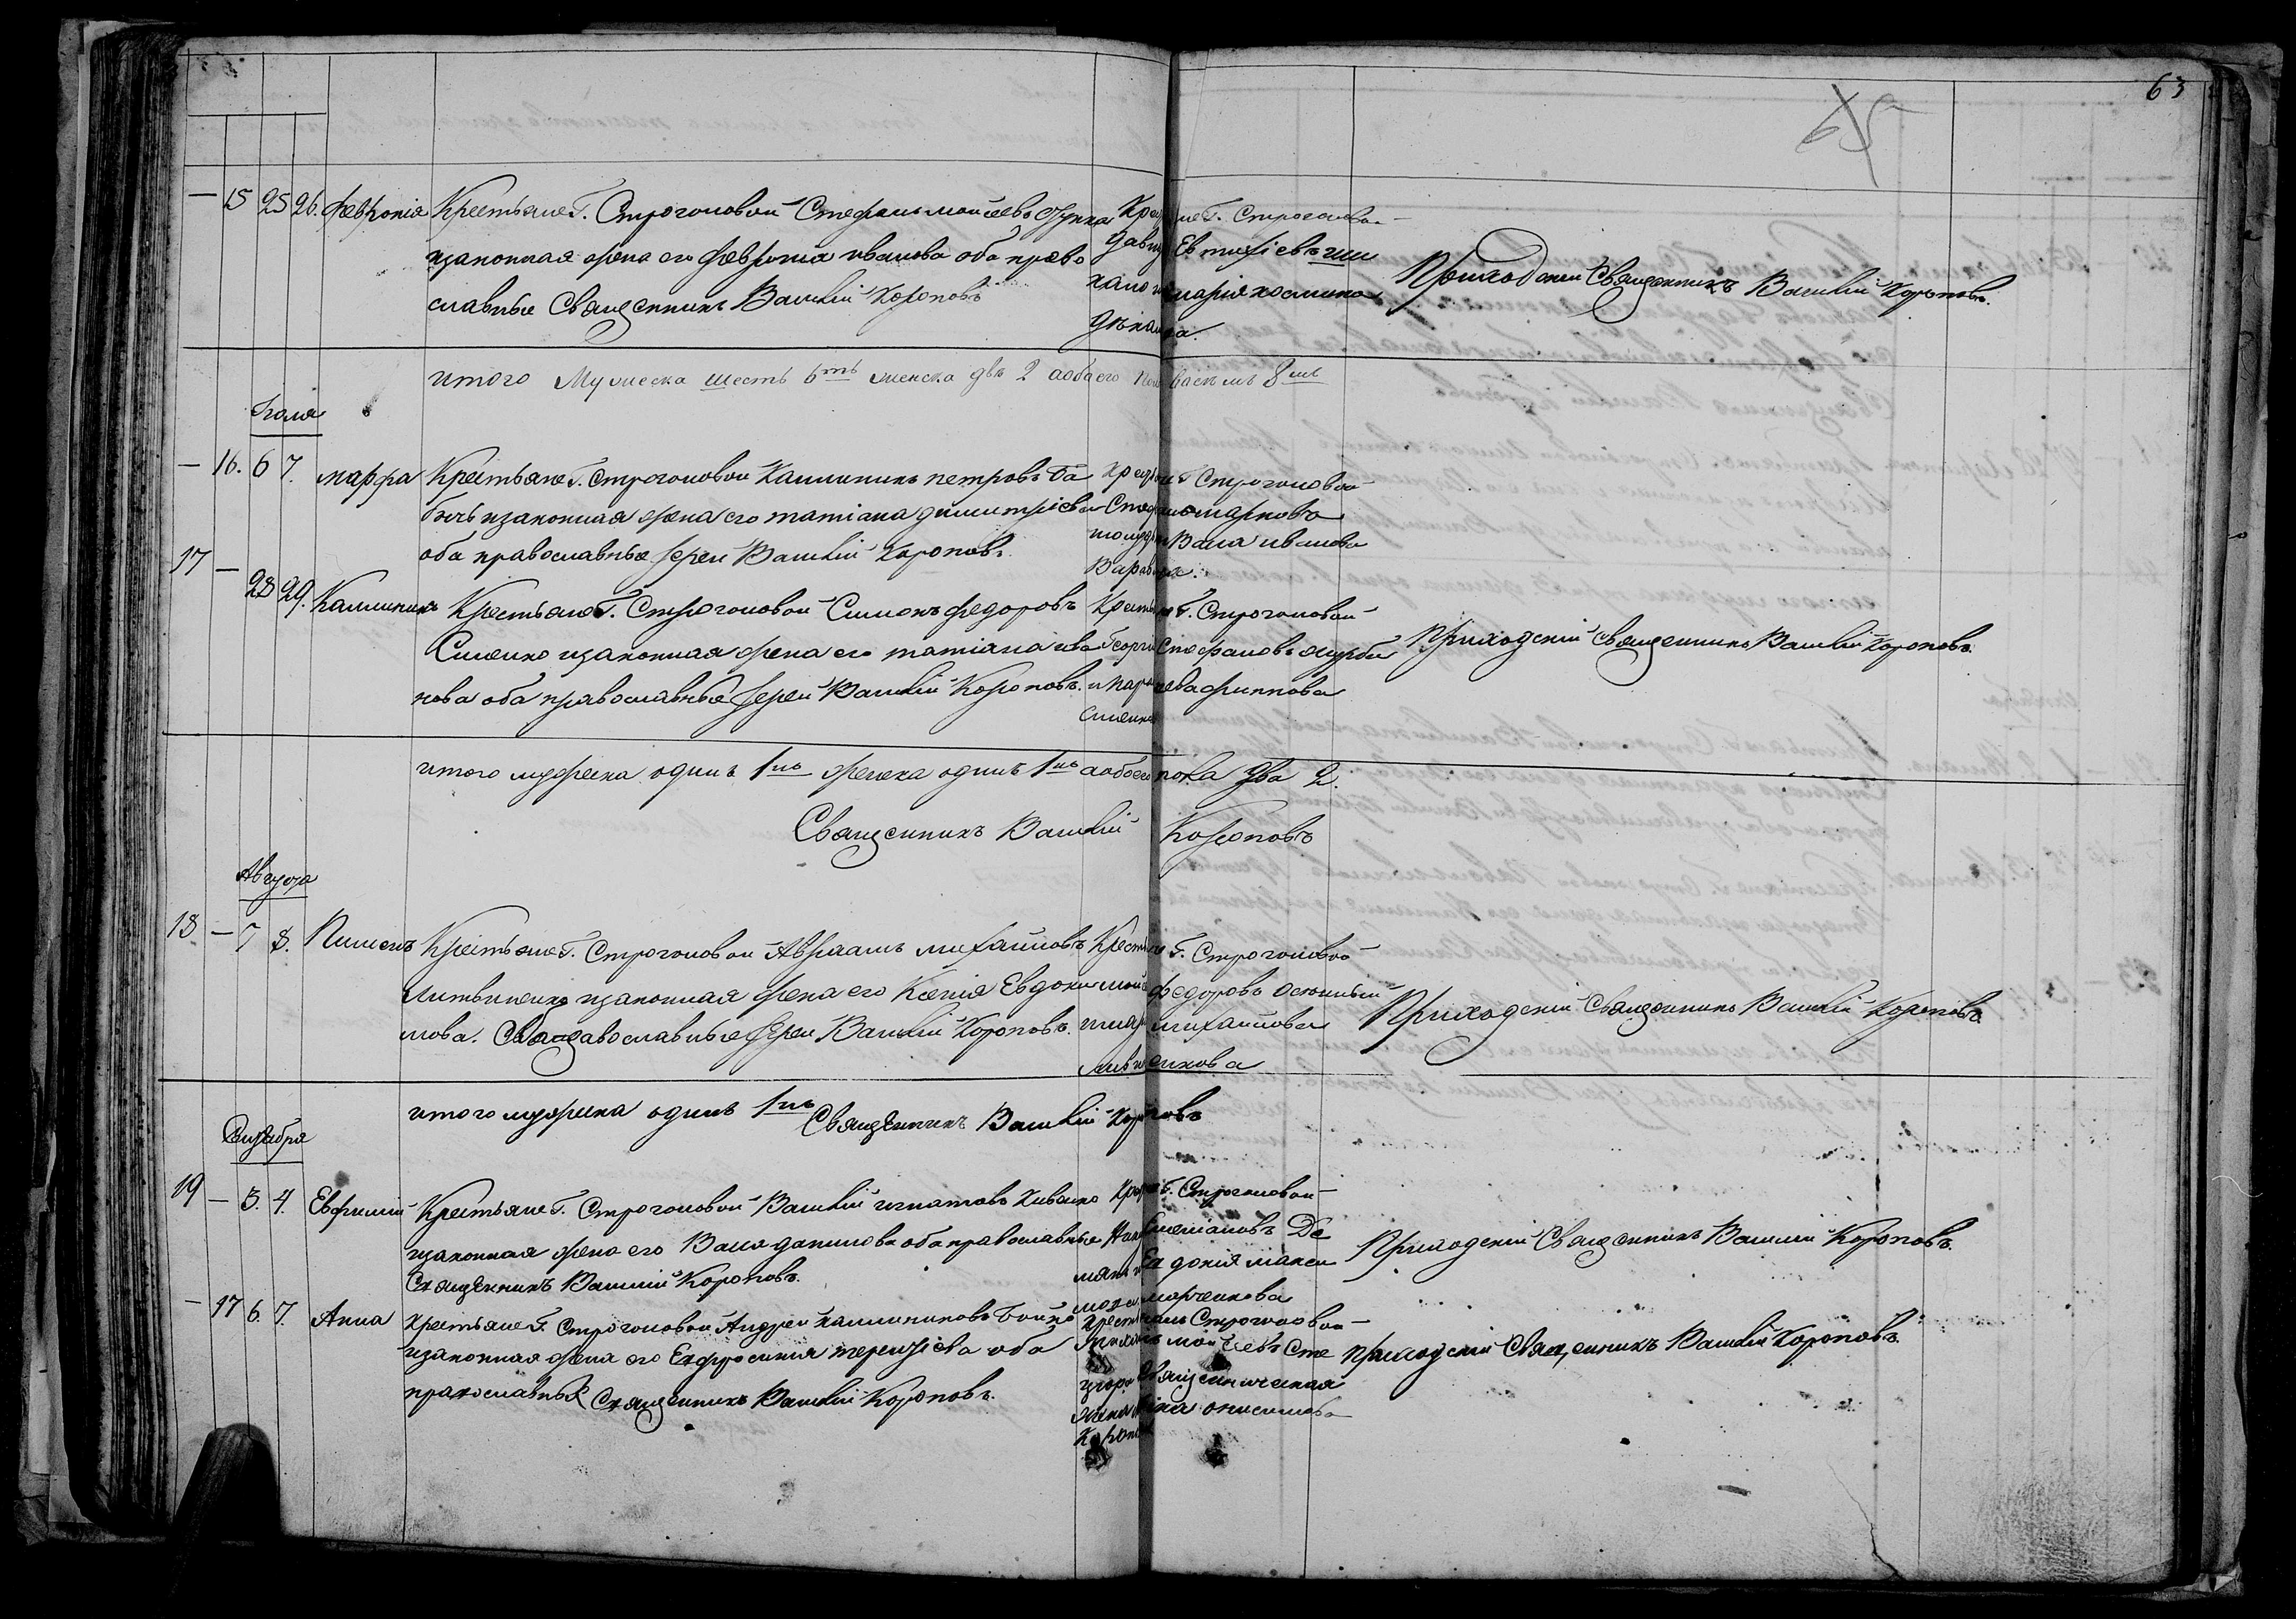 63
65
— 15 25 26. Февронія Крестьяне Г. Строгоновой Стефанъ Моисеевъ
изаконная жена его Феврония иванова оба право
славные Священникъ Василій Короповъ
Г. Строгонова
Евтихіевъ
Мария космина
Приходскии Священникъ Василий Короповъ.
итого Мужеска шесть 6ть женска двѣ 2 аобаего пола васемь 8мь
Іюля
— 16. 6 7. марфа Крестьяне Г. Строгоновой Каллиникъ петровъ Ба
бичь изаконная жена его татиана димитріева
оба православные Іереи Василій Короповъ.
Г Строгоновой
Стефанъ марковъ
иванова
17 — 28 29. Каллиникъ Крестьяне Г. Строгоновой Симонъ федоровъ
Сиенко изаконная жена его татиана ива
нова оба православные Іереи Василій Короповъ.
Крестьяне Г. Строгоновой
Георгій Стефановъ
и Пара филипова
сиенко
Приходскій священникъ Василій Короповъ.
итого мужеска одинъ 1нъ женска одинъ 1нъ аобоего пола два 2.
Священникъ Василій Короповъ
Августа
18 — 7 8. Пименъ Крестьяне Г. Строгоновой Авраамъ михаиловъ
Литвиненко изаконная жена его Ксенія Евдоки
мова. православные Іереи Василій Короповъ.
Крестьяне Г. Строгоновой
федоровъ
михаилова
Приходскій Священникъ Василій Короповъ
итого мужеска одинъ 1нъ Священникъ Василій Короповъ
Сентября
19 — 3. 4. Евфимій Крестьяне Г. Строгоновой Василій игнатовъ
изаконная жена его Васса данилова оба православные
Священникъ Василій Короповъ.
Г. Строгоновой
Де
мяни Евдокия макси
мова марченкова
Приходскій Священникъ Василий Короповъ.
— 17 6. 7. Анна Крестьяне Г. Строгоновой Андреи каллиниковъ Бойко
изаконная жена его Евфросиния терентіева оба
православные Священникъ Василий Короповъ.
Строгоновой
моисеевъ Сте
Священническая
жена онисимова
Коропова
Приходскій Священникъ Василій Короповъ.